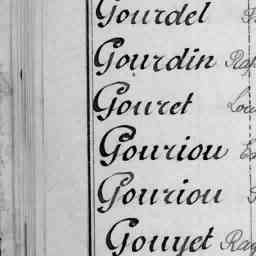 Gourdel
Gourdin
Gouret
Gouriou
Gouriou
Gouyet